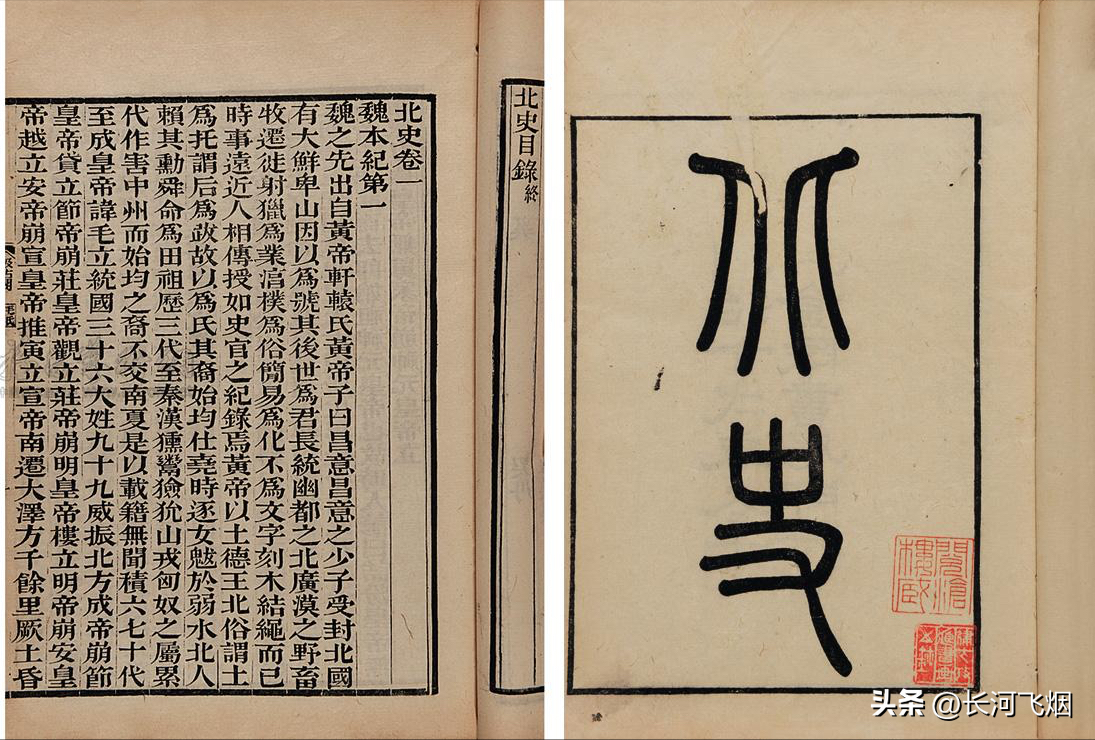 北史
北史目錄終
北史卷一
魏本紀第一
魏之先出自黃帝軒轅氏黃帝子曰昌意昌意之少子受封北國
有大鮮卑山因以爲號其後世爲君長統幽都之北廣漠之野畜
牧遷徙射獵爲業淳樸爲俗簡易爲化不爲文字刻木結繩而已
時事遠近人相傳授如史官之紀錄焉黃帝以土德王北俗謂土
爲托謂后爲跋故以爲氏其裔始均仕堯時逐女魃於弱水北人
賴其勳舜命爲田祖歷三代至秦漢獯鬻獫狁山戎匈奴之屬累
代作害中州而始均之裔不交南夏是以載籍無聞積六七十代
至成皇帝諱毛立統國三十六大姓九十九威振北方成帝崩節
皇帝貸立節帝崩莊皇帝觀立莊帝崩明皇帝樓立明帝崩安皇
帝越立安帝崩宣皇帝推寅立宣帝南遷大澤方千餘里厥土昏
头条 @长河飞烟